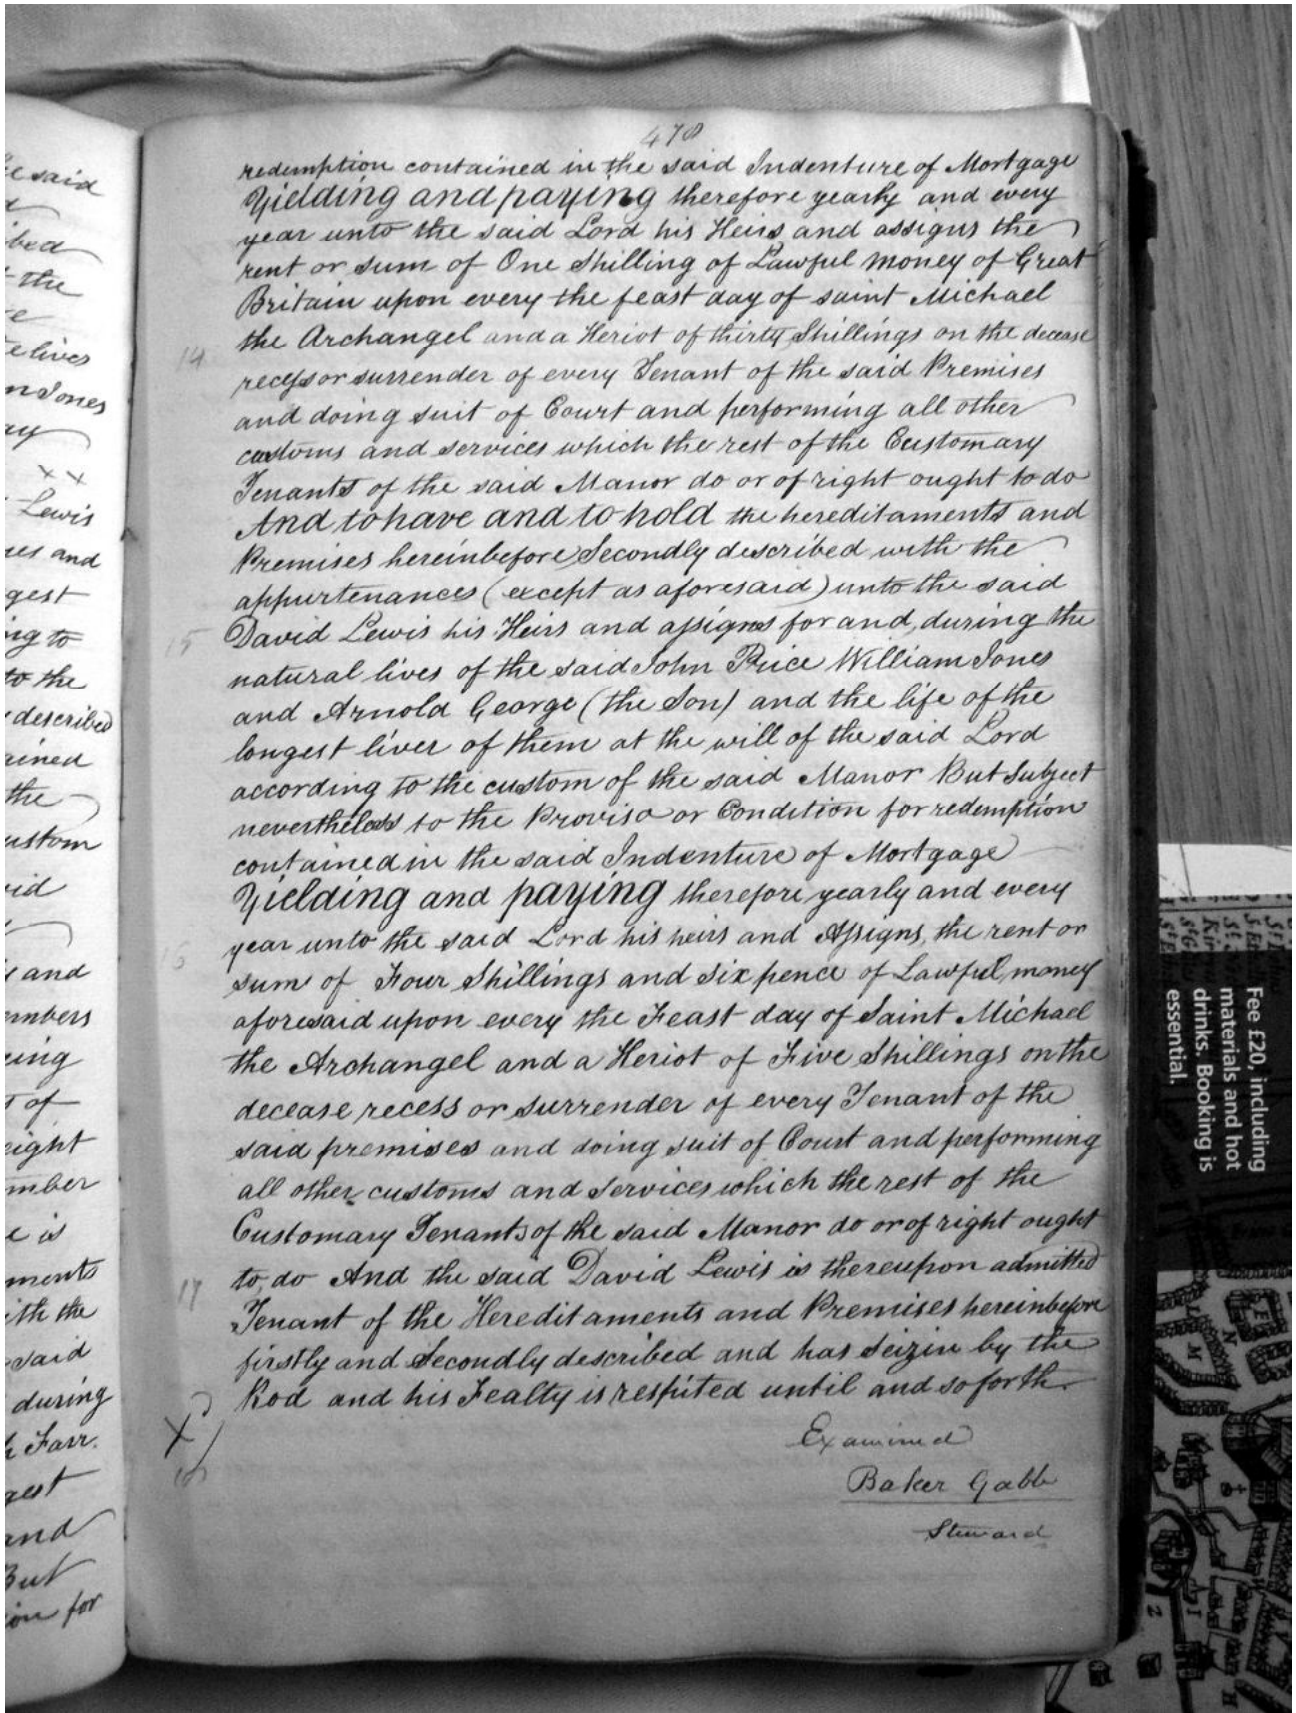 e said
ibed
the
elives
n Jones
ay
x x
Lewis
ses and
gest
ing to
to the
described
ained
the
ustom
vid
s and
embers
eing
t of
eight
mber
e is
ments
ith the
said
during
h Farr.
gest
and
But
ion for
478
redemption contained in the said Indenture of Mortgage
Yielding and paying therefore yearly and every
year unto the said Lord his Heirs and assigns the
rent or sum of One Shilling of Lawful money of Great
Britain upon every the feast day of saint Michael
the Archangel and a Heriot of thirty Shillings on the decease
14
recess or surrender of every Tenant of the said Premises
and doing suit of Court and performing all other
customs and services which the rest of the Customary
Tenants of the said Manor do or of right ought to do
And to have and to hold the hereditaments and
Premises hereinbefore Secondly described with the
appurtenances (except as aforesaid) unto the said
15 David Lewis his Heirs and assigns for and during the
natural lives of the said John Price William Jones
and Arnold George (the Son) and the life of the
longest liver of them at the will of the said Lord
according to the custom of the said Manor But Subject
nevertheless to the Proviso or Condition for redemption
contained in the said Indenture of Mortgage
Yielding and paying therefore yearly and every
year unto the said Lord his heirs and Assigns the rent or
sum of Four Shillings and six pence of Lawful money
aforesaid upon every the Feast day of Saint Michael
the Archangel and a Heriot of Five Shillings on the
decease recess or surrender of every Tenant of the
said premises and doing suit of Court and performing
all other customs and services which the rest of the
Customary Tenants of the said Manor do or of right ought
17 to do And the said David Lewis is thereupon admitted
Tenant of the Hereditaments and Premises hereinbefore
firstly and Secondly described and has Seizin by the
Rod and his Fealty is respited until and so forth
X
Examined
Baker Gabb
Steward
Fee £20, including
materials and hot
drinks. Booking is
essential.